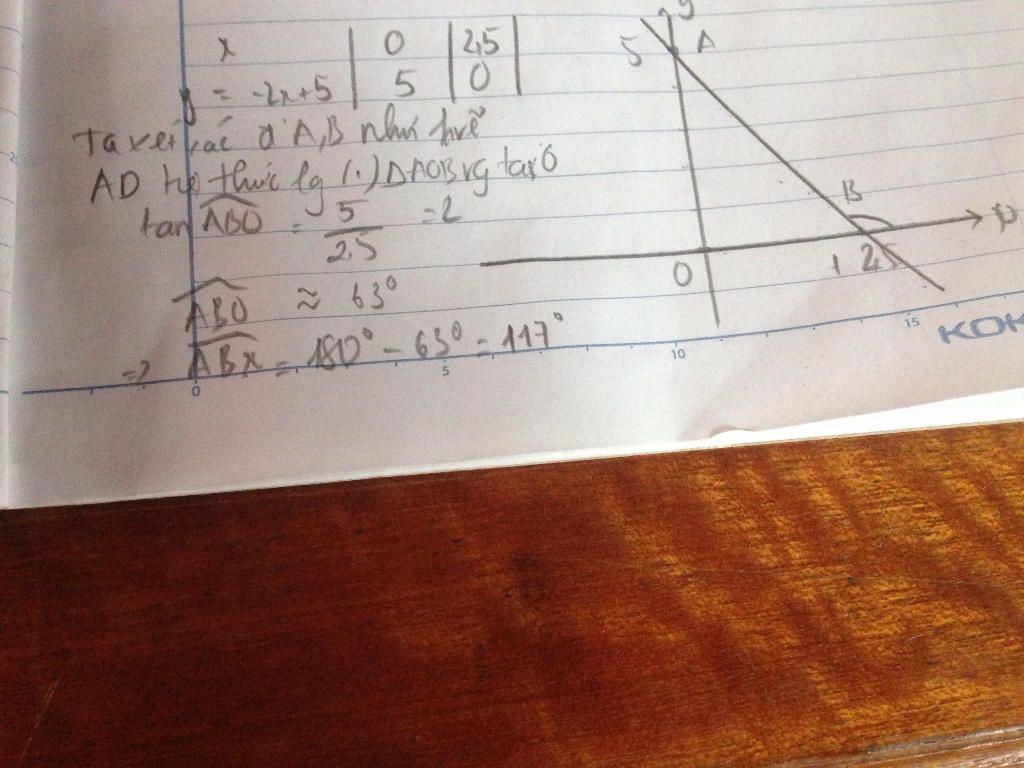 x | 0 | 2,5 |
y = -2x+5 | 5 | 0 |
Ta xét các đ' A,B như hvẽ
AD hệ thức lg (.) ΔAOB vg tại O
tan ABO = 5/2,5 = 2
ABO ≈ 63°
=> ABx = 180° - 63° = 117°
y
5 A
B
O 1 2,5
0 5 10 15
KOK